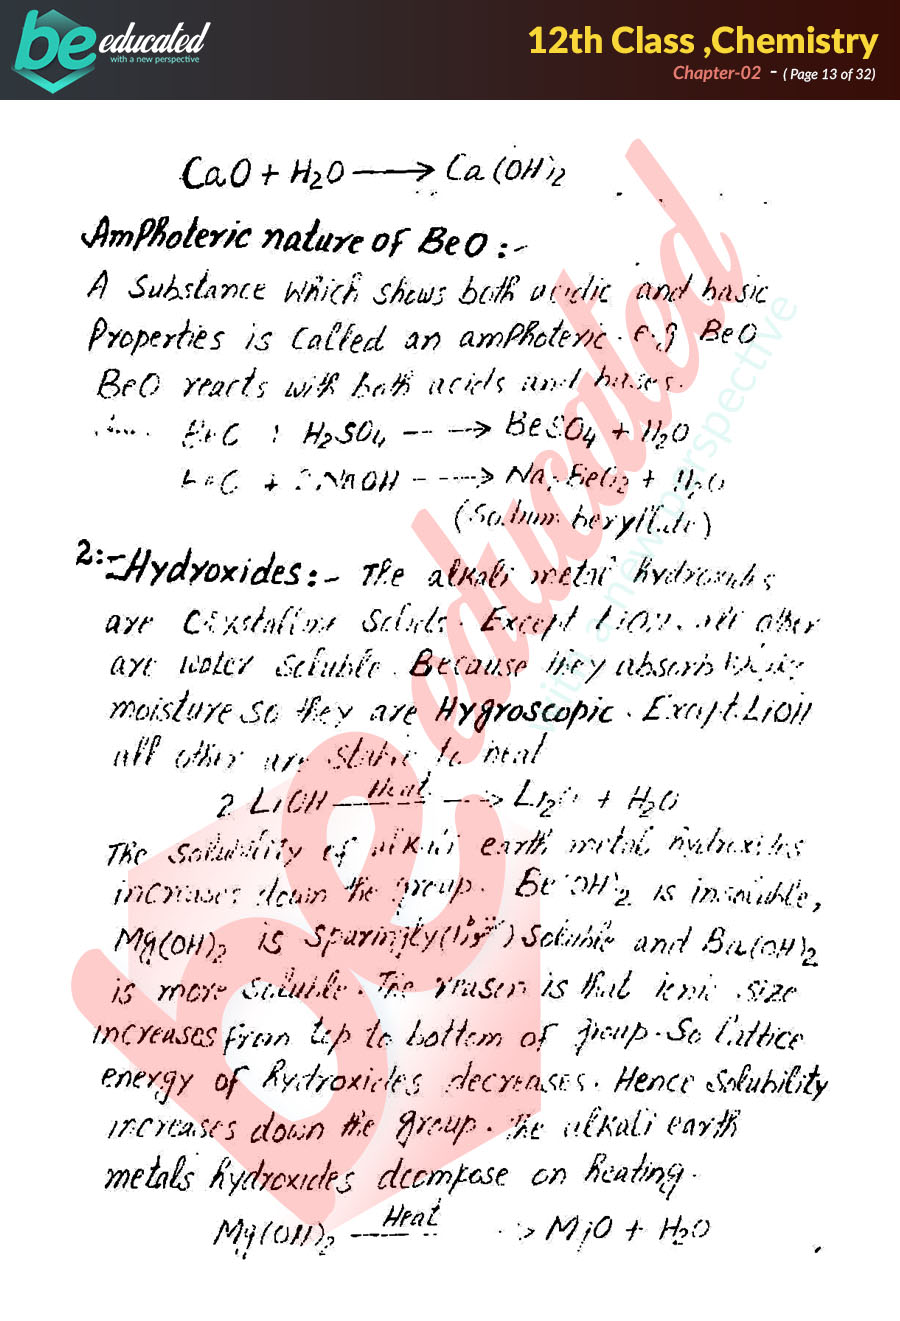 be educated
with a new perspective
12th Class ,Chemistry
Chapter-02 - ( Page 13 of 32)
CaO + H2O ⟶ Ca(OH)2
Amphoteric nature of BeO :-
A Substance which shows both acidic and basic
Properties is called an amphoteric. e.g BeO
BeO reacts with both acids and bases.
H2SO4 ⟶ BeSO4 + H2O
NaOH ⟶ Na2BeO2 + H2O
(Sodium beryllate)
2:- Hydroxides:- The alkali metal hydroxides
are Crystalline Solids. Except LiOH, all other
are water Soluble. Because they absorb
moisture so they are Hygroscopic. Except LiOH
all other are stable to heat
2 LiOH Heat ⟶ Li2O + H2O
The solubility of alkali earth metal hydroxides
increases down the group. Be(OH)2 is insoluble,
Mg(OH)2 is Sparingly Soluble and Ba(OH)2
is more Soluble. The reason is that ionic size
increases from top to bottom of group. So Lattice
energy of hydroxides decreases. Hence Solubility
increases down the group. The alkali earth
metals hydroxides dcompose on heating.
Mg(OH)2 Heat ⟶ MgO + H2O
be educated
with a new perspective